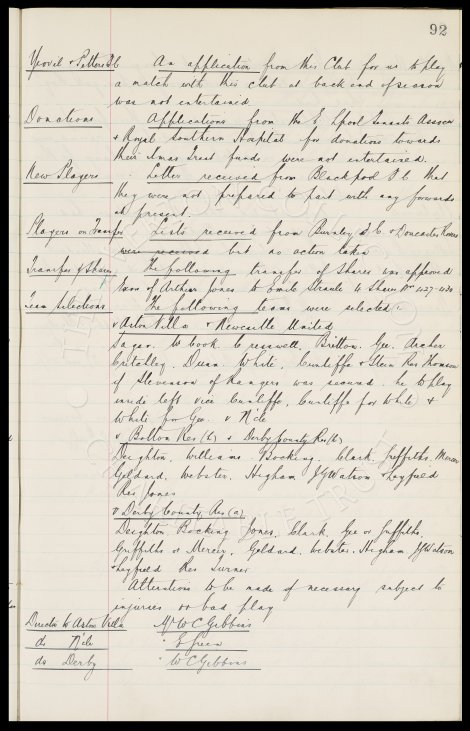 92
Yeovil & Petters Utd An application from this Club for us to play
a match with this club at back end of season
was not entertained.
Donations Applications from the E. Lpool Tenants Assocn
& Royal Southern Hospital for donations towards
their Xmas treat funds were not entertained.
New Players Letter received from Blackpool Fc that
they were not prepared to part with any forwards
at present.
Players on Transfer Lists received from Burnley F.C & Doncaster Rovers
were received but no action taken
Transfer of Shares The following transfer of shares was approved
Exors of Arthur Jones to Emile 4 Shares Nos 1127-1130
Team Selections The following teams were selected:-
v Aston Villa v Newcastle United
Sagar. W. Cook. C. Cresswell. Britton. Gee. Archer
Critchley. Dunn. White. Cunliffe & Stein Res Thomson
if Stevenson of Rangers was secured. he to play
inside left vice Cunliffe, Cunliffe for White &
White for Gee. v N'cle
v Bolton Res (h) & Derby County Res (h)
Deighton. Williams. Bocking. Clark. Griffiths. Mercer
Geldard. Webster. Higham. JG Watson & Leyfield
Res Jones
v Derby County Res (a)
Deighton. Bocking. Jones. Clark. Gee or Griffiths.
Griffiths or Mercer. Geldard. Webster. Higham JG Watson
& Leyfield Res Turner
Alterations to be made if necessary subject to
injuries or bad play
Director to Aston Villa Mr W C Gibbins
do N'cle " E Green
do Derby " W C Gibbins